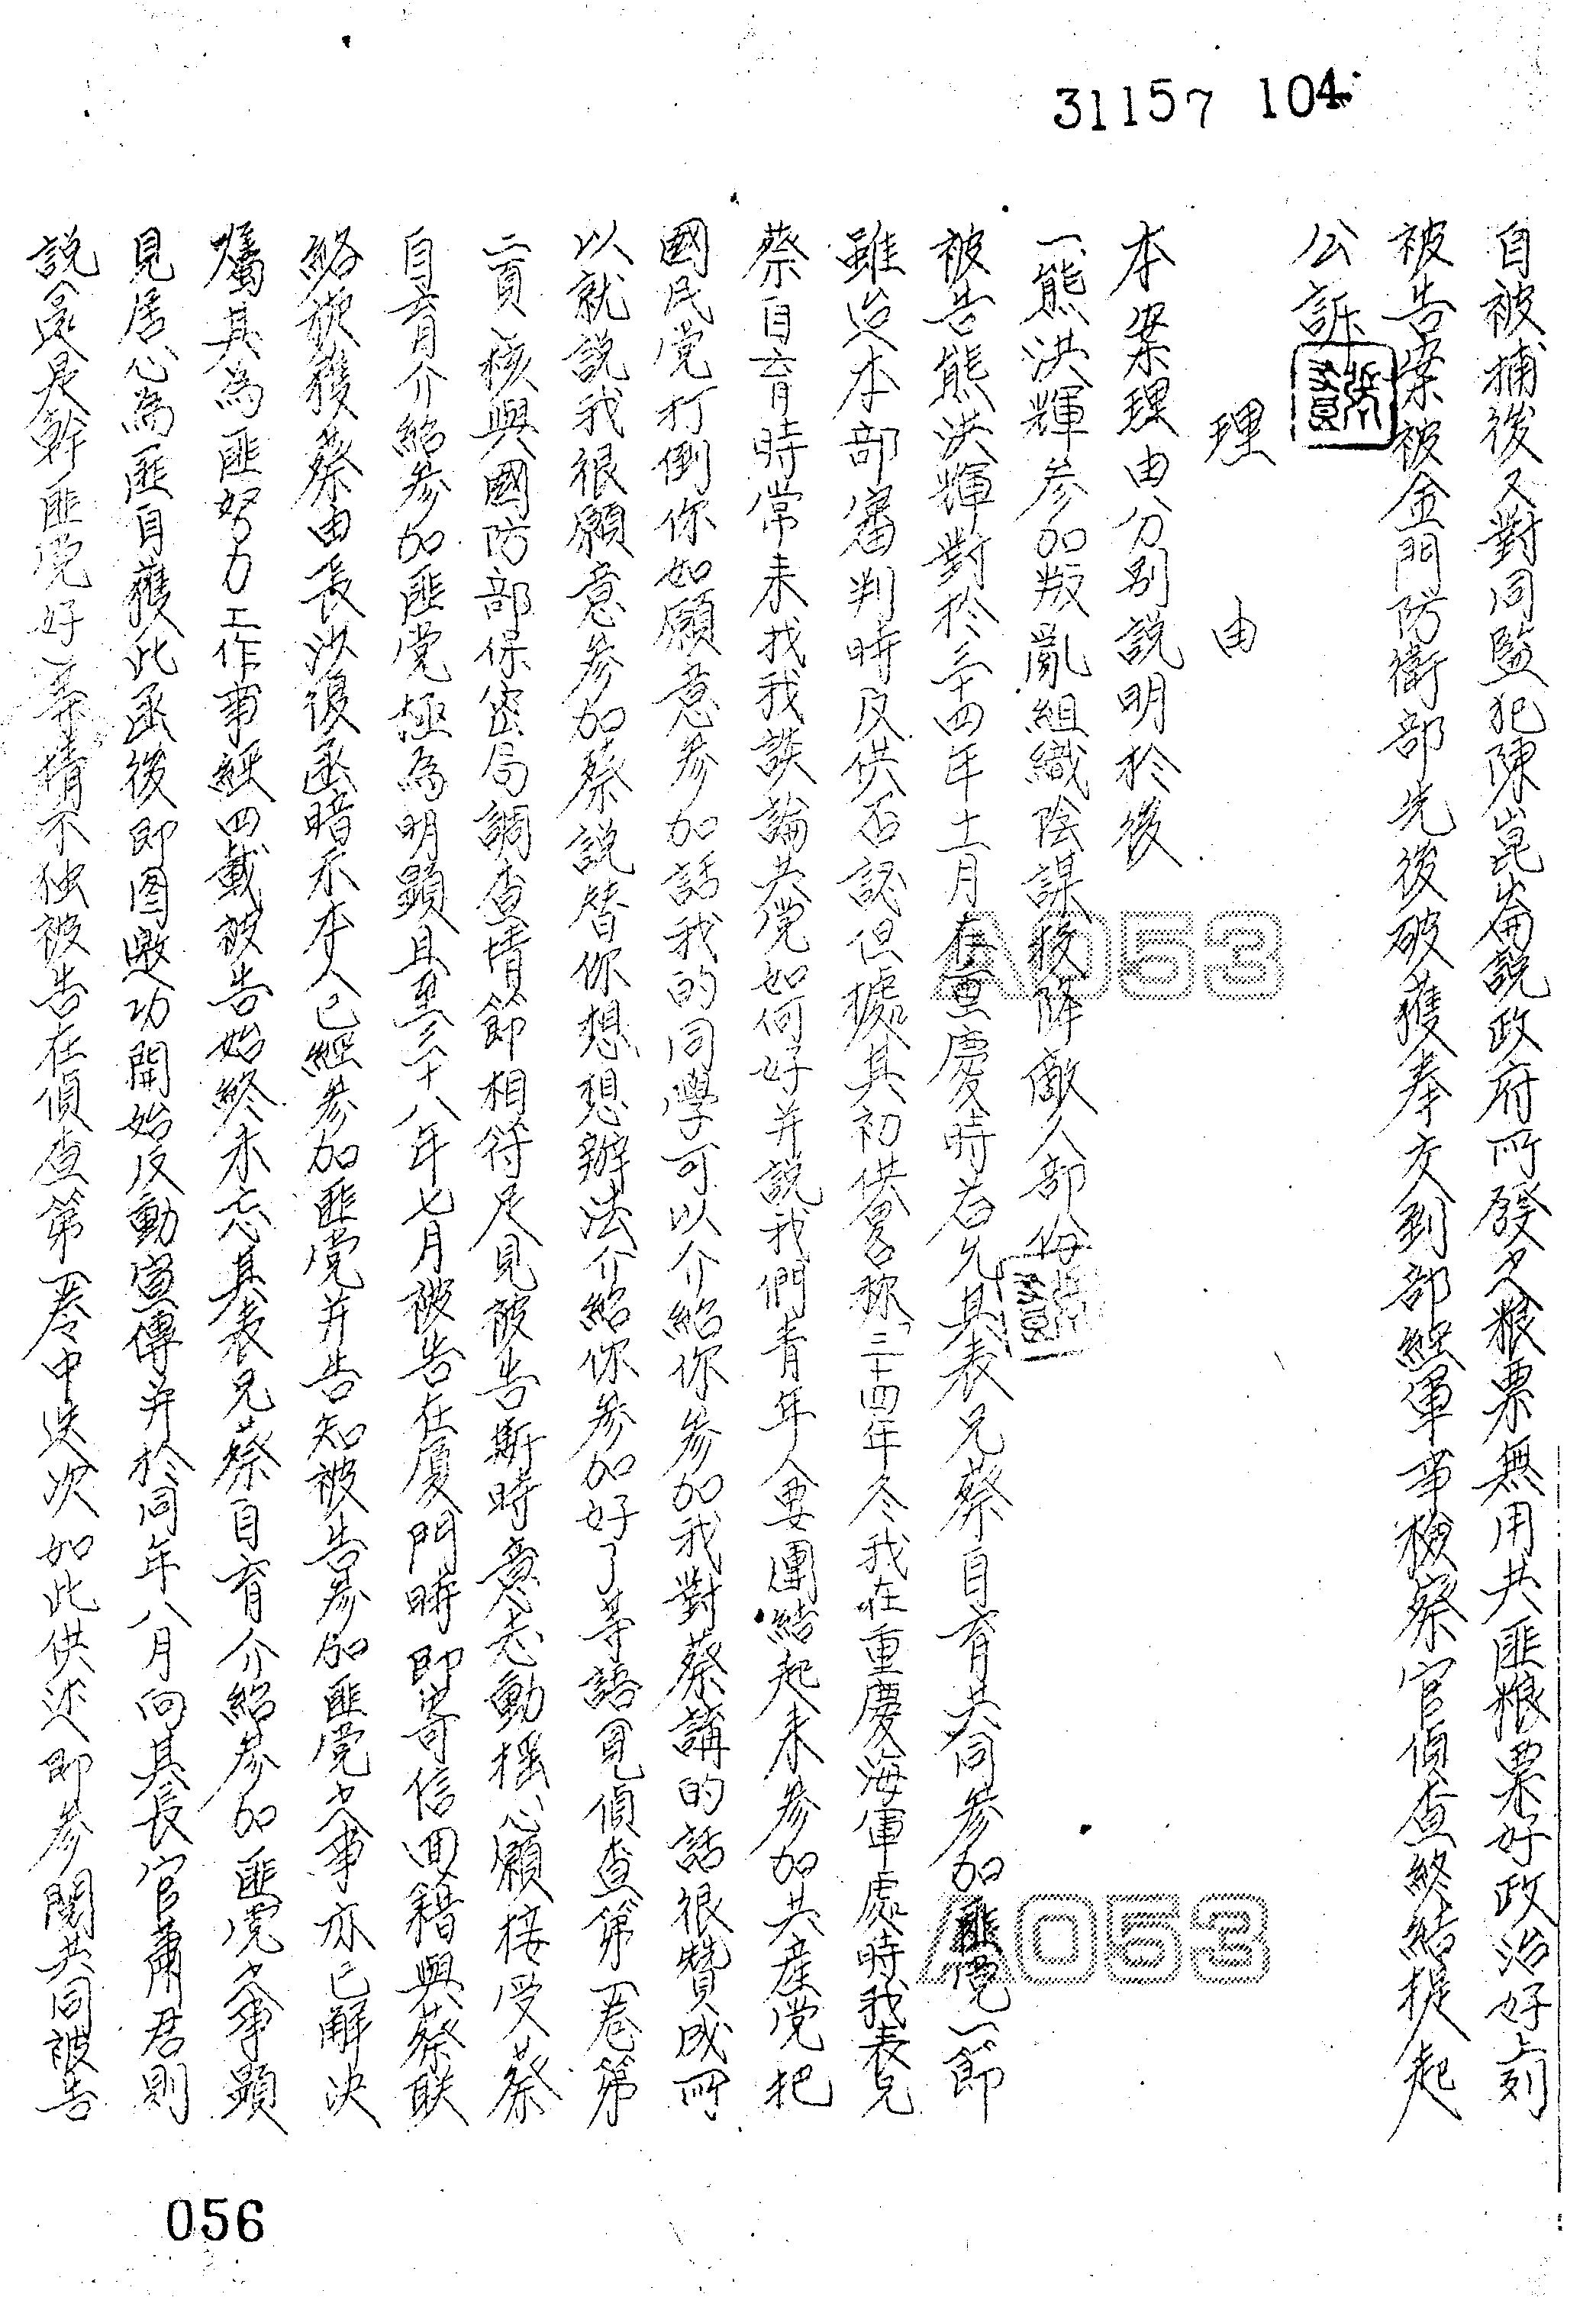 31157 104
自被捕後又對同監犯陳崑崙說政府所發之粮票無用共匪粮票好政治好上列
被告案被金門防衛部先後破獲奉交到部經軍事檢察官偵查終結提起
公訴
理由
本案理由分別說明於後
一熊洪輝參加叛亂組織陰謀投降敵人部份
被告熊洪輝對於三十四年十一月在重慶時右允其表兄蔡自育共同參加匪党一節
雖迨本部審判時反供否認但據其初供畧称「三十四年冬我在重慶海軍處時我表兄
蔡自育時常來找我談論共党如何好并說我們青年人要團結起來參加共產党把
國民党打倒你如願意參加話我的同學可以介紹你參加我對蔡講的話很贊成所
以就說我很願意參加蔡說替你想想辦法介紹你參加好了等語見偵查第一卷第
二頁核與國防部保密局調查情節相符足見被告斯時意志動搖心願接受蔡
自育介紹參加匪党極為明顯且至三十八年七月被告在厦門時即寄信回籍與蔡联
絡欲獲蔡由長沙復函暗示本人已經參加匪党并告知被告參加匪党之事亦已解决
囑其為匪努力工作事經四載被告始終未忘其表兄蔡自育介紹參加匪党之事顯
見居心為匪自獲此函後即图邀功開始反動宣傳并於同年八月向其長官蕭君則
說還是幹匪党好等情不独被告在偵查第一卷中迭次如此供述即參閱共同被告
056
A053
A053